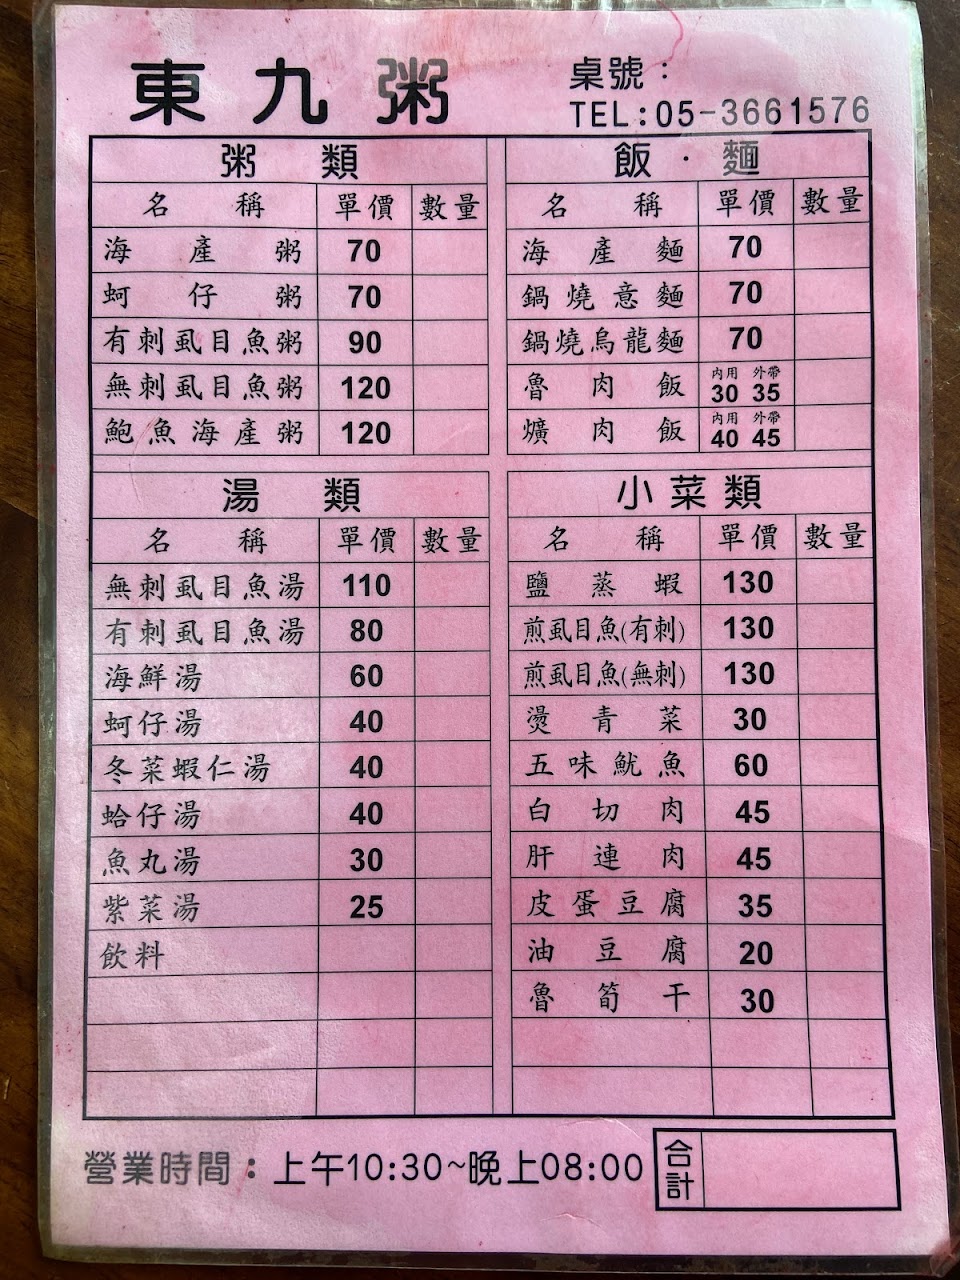 東九粥
桌號：
TEL:05-3661576
粥類
名稱 單價 數量
海產粥 70
蚵仔粥 70
有刺虱目魚粥 90
無刺虱目魚粥 120
鮑魚海產粥 120
飯．麵
名稱 單價 數量
海產麵 70
鍋燒意麵 70
鍋燒烏龍麵 70
魯肉飯 內用 30 外帶 35
爌肉飯 內用 40 外帶 45
湯類
名稱 單價 數量
無刺虱目魚湯 110
有刺虱目魚湯 80
海鮮湯 60
蚵仔湯 40
冬菜蝦仁湯 40
蛤仔湯 40
魚丸湯 30
紫菜湯 25
飲料
小菜類
名稱 單價 數量
鹽蒸蝦 130
煎虱目魚(有刺) 130
煎虱目魚(無刺) 130
燙青菜 30
五味魷魚 60
白切肉 45
肝連肉 45
皮蛋豆腐 35
油豆腐 20
魯筍干 30
營業時間：上午10:30~晚上08:00
合計